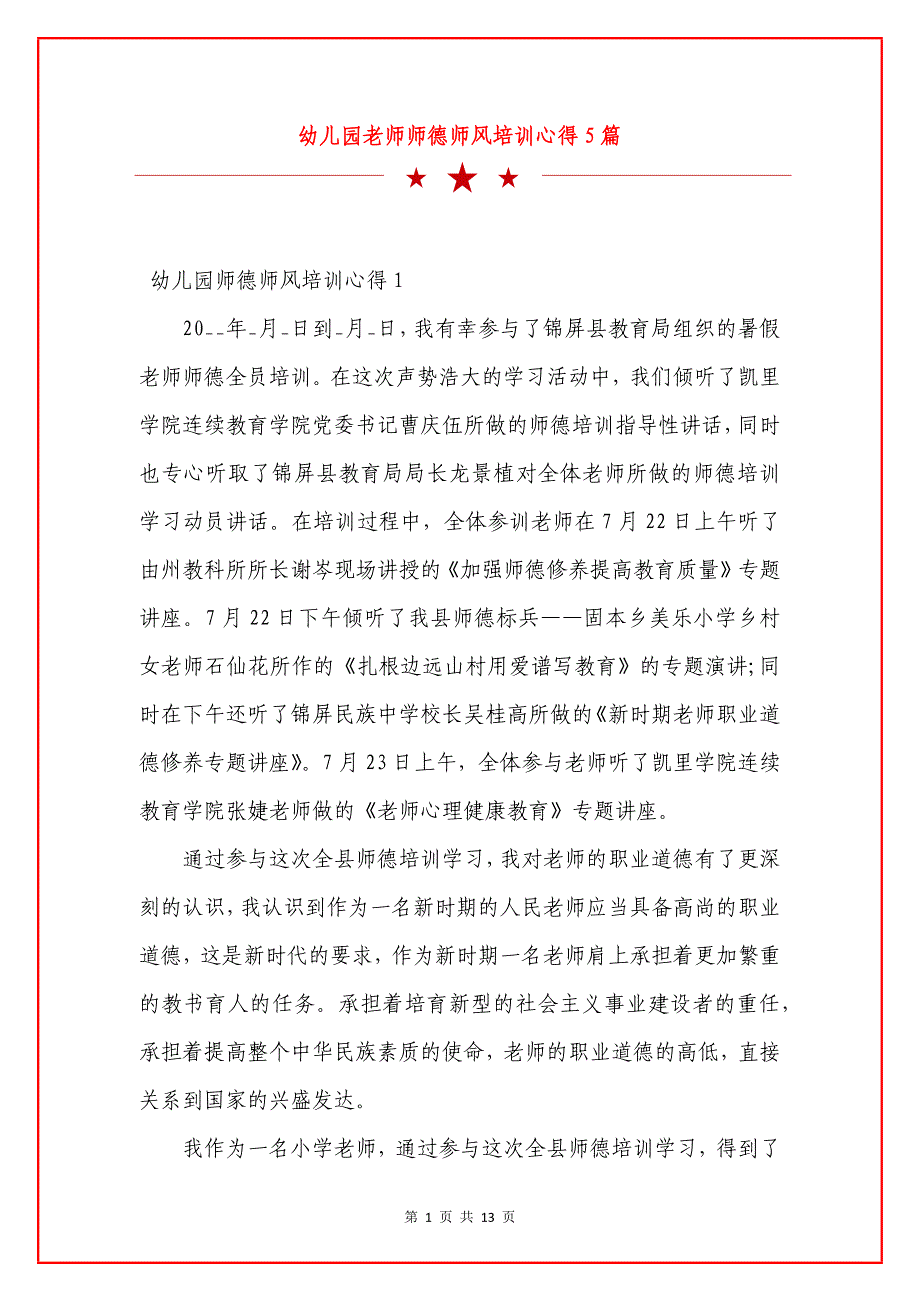 幼儿园老师师德师风培训心得 5 篇
幼儿园师德师风培训心得 1
20__年_月_日到_月_日，我有幸参与了锦屏县教育局组织的暑假
老师师德全员培训。在这次声势浩大的学习活动中，我们倾听了凯里
学院连续教育学院党委书记曹庆伍所做的师德培训指导性讲话，同时
也专心听取了锦屏县教育局局长龙景植对全体老师所做的师德培训
学习动员讲话。在培训过程中，全体参训老师在 7 月 22 日上午听了
由州教科所所长谢岑现场讲授的《加强师德修养提高教育质量》专题
讲座。7 月 22 日下午倾听了我县师德标兵——固本乡美乐小学乡村
女老师石仙花所作的《扎根边远山村用爱谱写教育》的专题演讲;同
时在下午还听了锦屏民族中学校长吴桂高所做的《新时期老师职业道
德修养专题讲座》。7 月 23 日上午，全体参与老师听了凯里学院连续
教育学院张婕老师做的《老师心理健康教育》专题讲座。
通过参与这次全县师德培训学习，我对老师的职业道德有了更深
刻的认识，我认识到作为一名新时期的人民老师应当具备高尚的职业
道德，这是新时代的要求，作为新时期一名老师肩上承担着更加繁重
的教书育人的任务。承担着培育新型的社会主义事业建设者的重任，
承担着提高整个中华民族素质的使命，老师的职业道德的高低，直接
关系到国家的兴盛发达。
我作为一名小学老师，通过参与这次全县师德培训学习，得到了
第 1 页 共 13 页